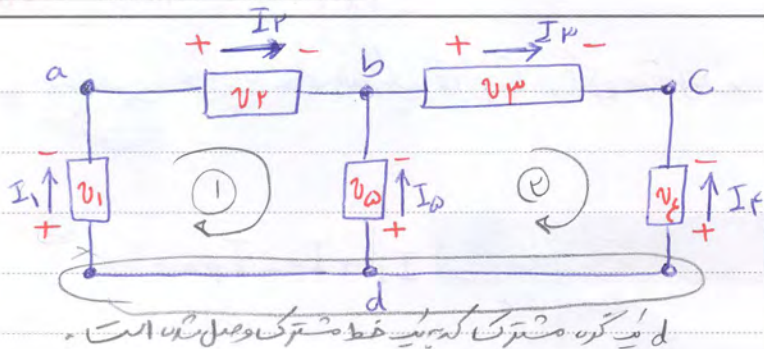 + I۲ -
+ I۳ -
a
b
c
v۲
v۳
-
-
-
I۱ v۱
۱
v۵ I۵
۲
v۴ I۴
+
+
+
d
d یک گره مشترک که به یک خط مشترک وصل شده است.